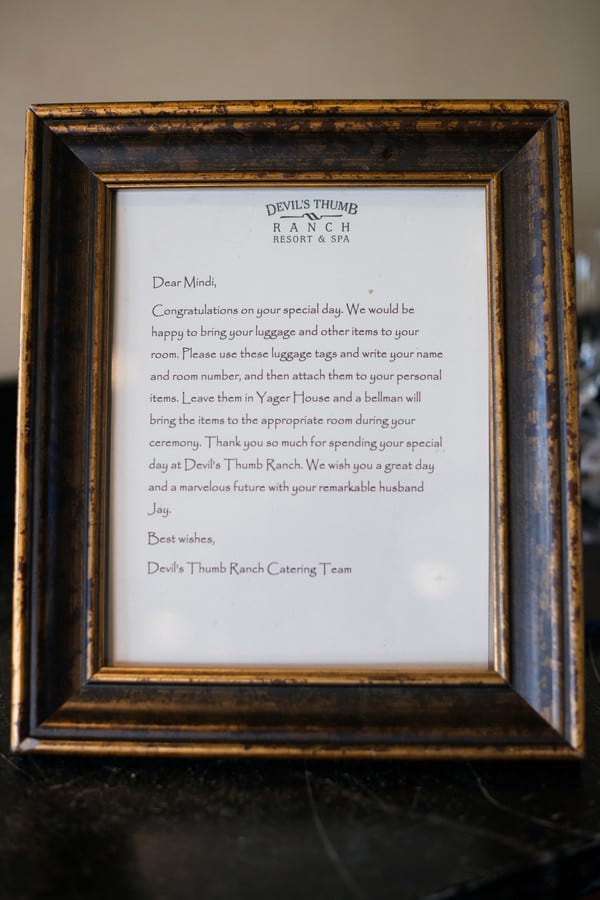 DEVIL'S THUMB
RANCH
RESORT & SPA
Dear Mindi,
Congratulations on your special day. We would be
happy to bring your luggage and other items to your
room. Please use these luggage tags and write your name
and room number, and then attach them to your personal
items. Leave them in Yager House and a bellman will
bring the items to the appropriate room during your
ceremony. Thank you so much for spending your special
day at Devil's Thumb Ranch. We wish you a great day
and a marvelous future with your remarkable husband
Jay.
Best wishes,
Devil's Thumb Ranch Catering Team